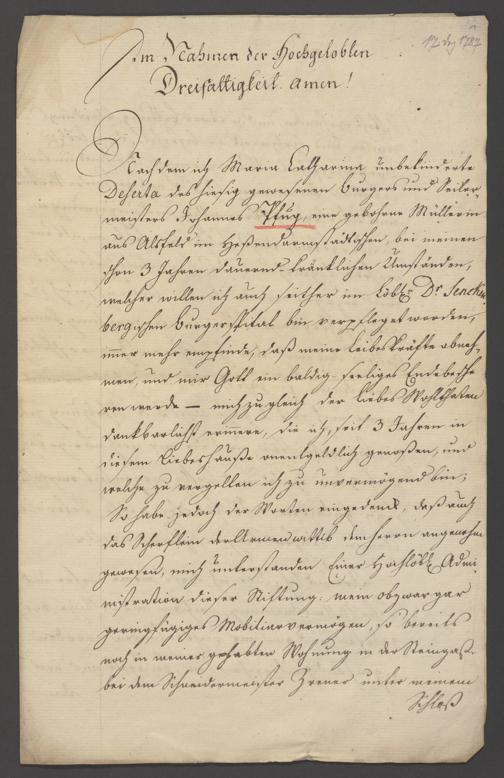 17 Dez 1787
Im Nahmen der Hochgelobten
Dreifaltigkeit. amen!
Nachdem ich Maria Catharina unbekinderte
Deserta des hiesig gewesenen burgers und Seiler
meisters Johannes Pflug, eine gebohrne Müllerin
aus Alsfeld im Heßendarmstädtischen, bei meinen
schon 3 Jahren dauernd kränklichen Umständen,
welcher willen ich auch seither im Löbl. Dr Sencken
bergischen burgerspital bin verpfleget worden,
immer mehr empfinde, daß meine Leibeskräfte abneh-
men, und mir Gott ein baldig-seeliges Ende besche
ren werde – mich zugleich der liebes Wohlthaten
dankbarlichst erinnere, die ich, seit 3 Jahren in
diesem Liebeshauße ohnentgeldlich genoßen, und
welche zu vergelten ich zu unvermögend bin;
So habe jedoch der Worten eingedenk, daß auch
das Scherflein der armen wittib dem Herrn angenehm
gewesen, mich unterstanden Einer Hochlöbl. Admi
nistration dieser Stiftung: mein obzwar gar
geringfügiges Mobiliarvermögen, so bereits
noch in meiner gehabten Wohnung in der Steingaß
bei dem Schneidermeister unter meinem
Schloß